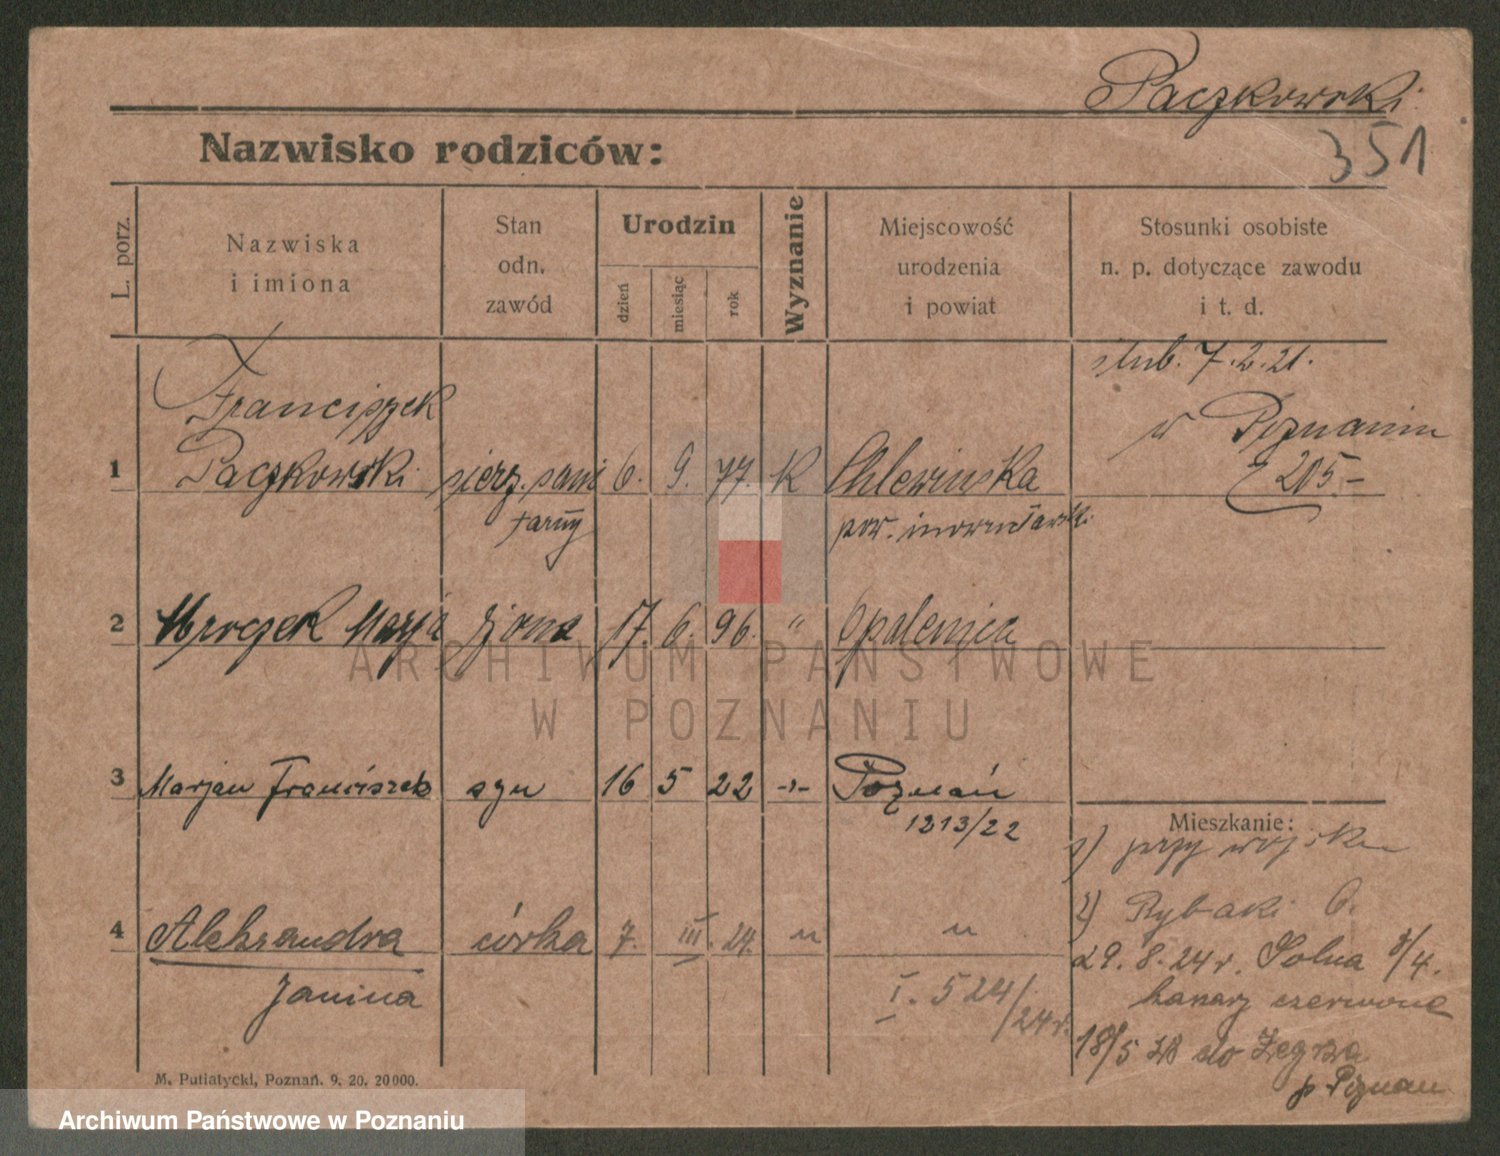 Paczkowski
351
Nazwisko rodziców:
L. porz.
Nazwiska
i imiona
Stan
odn.
zawód
Urodzin
dzień
miesiąc
rok
Wyznanie
Miejscowość
urodzenia
i powiat
Stosunki osobiste
n. p. dotyczące zawodu
i t. d.
ślub. 7.2.21.
w Poznaniu
205.-
1 Franciszek
Paczkowski sierż. sani 6. 9. 77. K Chlewiska
tarny pow. inowrocławski
2 Mroczek Marja żona 17. 6. 96. " Opalenica
3 Marjan Franciszek syn 16 5 22 -"- Poznań
1213/22
Mieszkanie:
1) przy wojsku
4 Aleksandra córka 7. III. 24. " "
Janina
I. 524/
24r.
2) Rybaki 6.
29.8.24r. Solna 8/4.
koszary czerwone
18/5 28 do Zegrza
p. Poznań
M. Putiatycki, Poznań. 9. 20. 20000.
ARCHIWUM PAŃSTWOWE
W POZNANIU
Archiwum Państwowe w Poznaniu